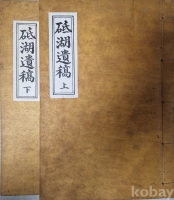 砥湖遺稿 上
砥湖遺稿 下
kobay